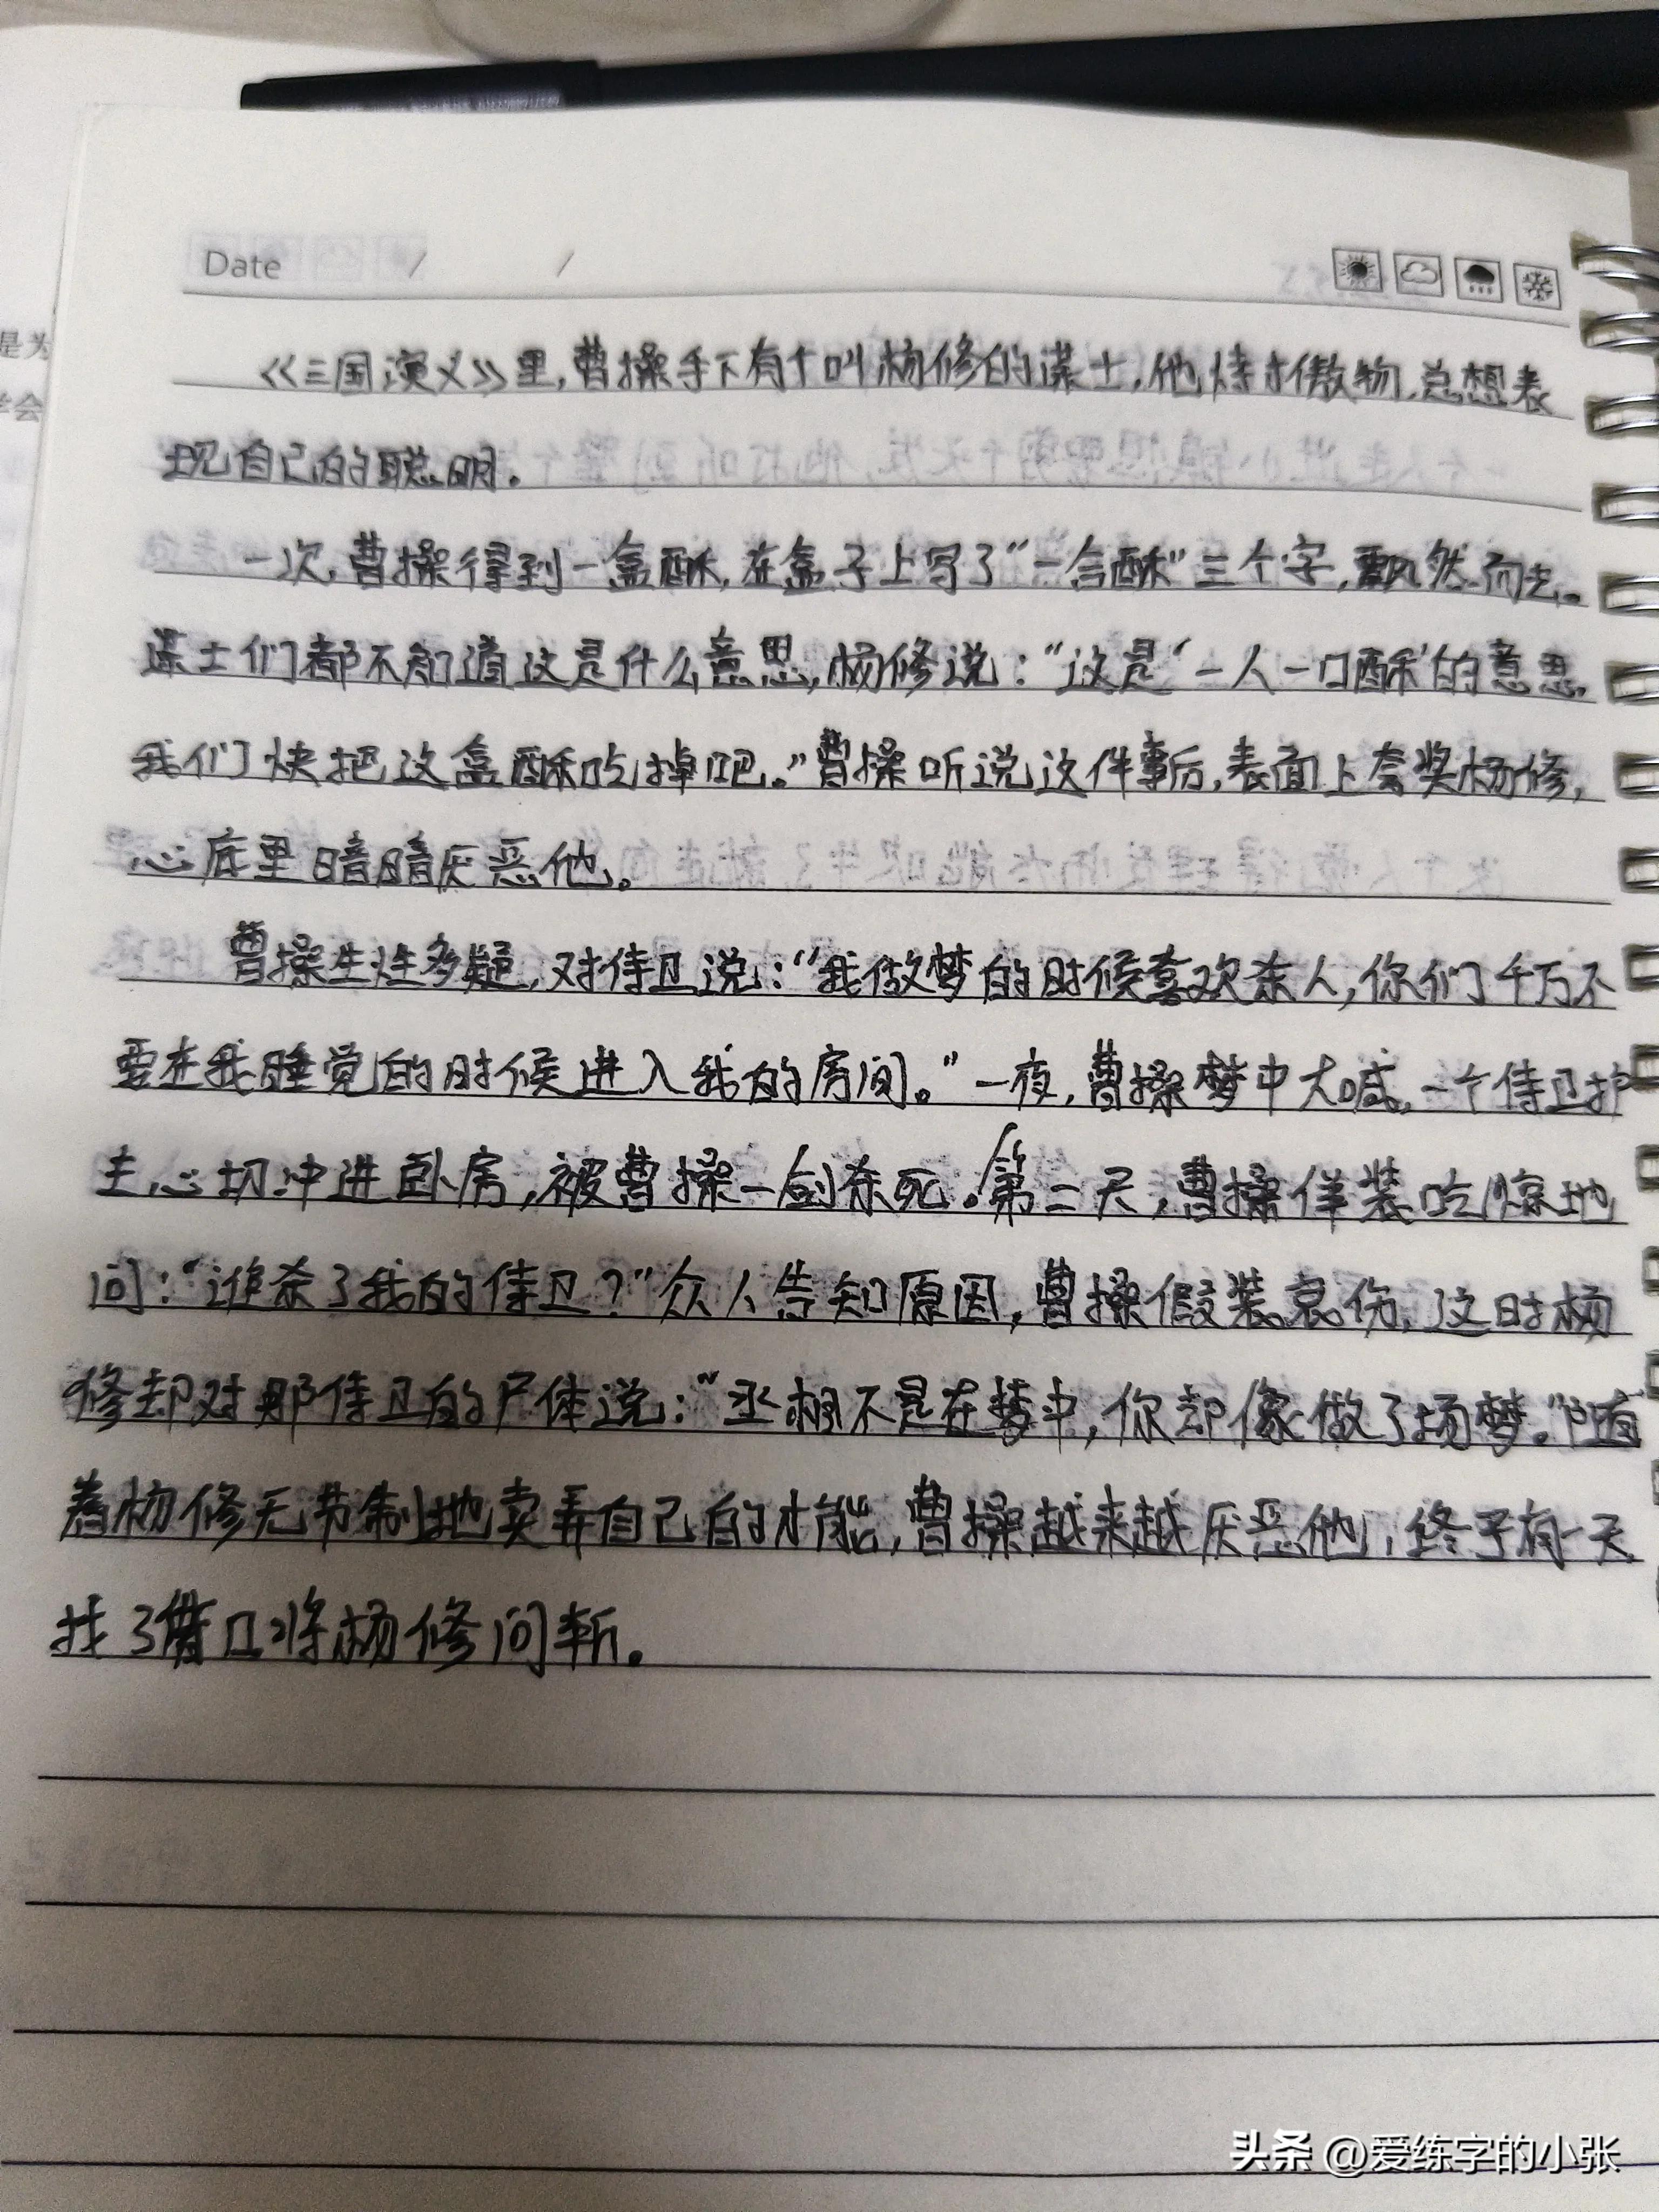 Date / /
是为
学会
《三国演义》里,曹操手下有个叫杨修的谋士,他恃才傲物,总想表
现自己的聪明。
一次,曹操得到一盒酥,在盒子上写了“一合酥”三个字,飘然而去。
谋士们都不知道这是什么意思,杨修说:“这是‘一人一口酥’的意思,
我们快把这盒酥吃掉吧。”曹操听说这件事后,表面上夸奖杨修,
心底里暗暗厌恶他。
曹操生性多疑,对侍卫说:“我做梦的时候喜欢杀人,你们千万不
要在我睡觉的时候进入我的房间。”一夜,曹操梦中大喊,一个侍卫护
主心切冲进卧房,被曹操一剑杀死。第二天,曹操佯装吃惊地
问:“谁杀了我的侍卫?”众人告知原因,曹操假装哀伤,这时杨
修却对那侍卫的尸体说:“丞相不是在梦中,你却像做了场梦。”随
着杨修无节制地卖弄自己的才能,曹操越来越厌恶他,终于有一天
找了借口将杨修问斩。
头条 @爱练字的小张